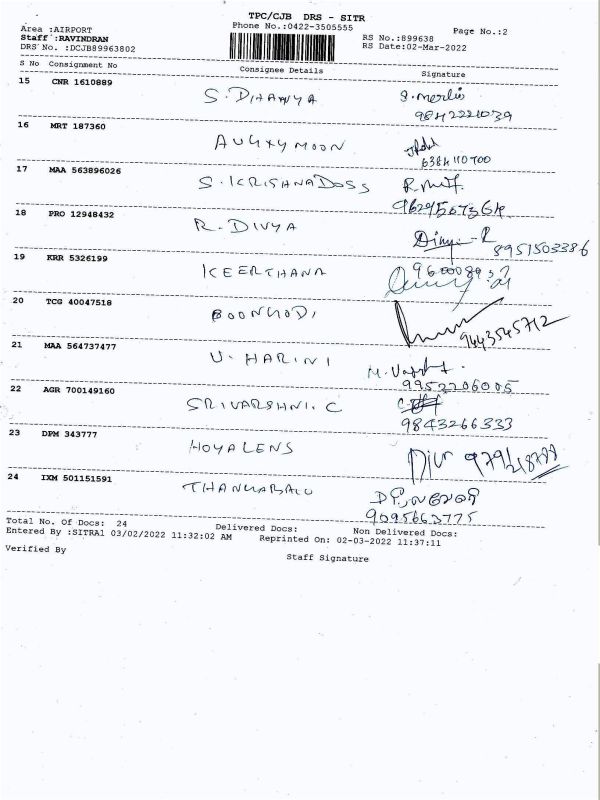 TPC/CJB DRS - SITR
Phone No.:0422-3505555
Page No.:2
Area :AIRPORT
Staff :RAVINDRAN
DRS No. :DCJB89963802
RS No.:899638
RS Date:02-Mar-2022
S No Consignment No Consignee Details Signature
15 CNR 1610889
S. DHANYA S. Merlin
9842221039
16 MRT 187360
AUGXYMOON
6384110700
17 MAA 563896026
S. KRISHNADOSS
18 PRO 12948432
R. DIVYA Divya R
8951503386
19 KRR 5326199
KEERTHANA
20 TCG 40047518
BOONGODI
9443545712
21 MAA 564737477
U. HARINI
9952206005
22 AGR 700149160
SRIVARSHNI. C
9843266333
23 DPM 343777
HOYALENS
24 IXM 501151591
THANGARAJU
9095663775
Total No. Of Docs: 24 Delivered Docs: Non Delivered Docs:
Entered By :SITRA1 03/02/2022 11:32:02 AM Reprinted On: 02-03-2022 11:37:11
Verified By Staff Signature